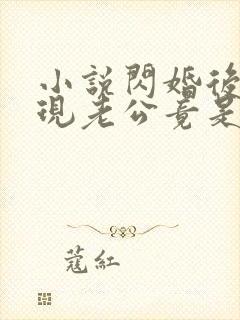 小説閃婚後
現老公竟是
蔻紅